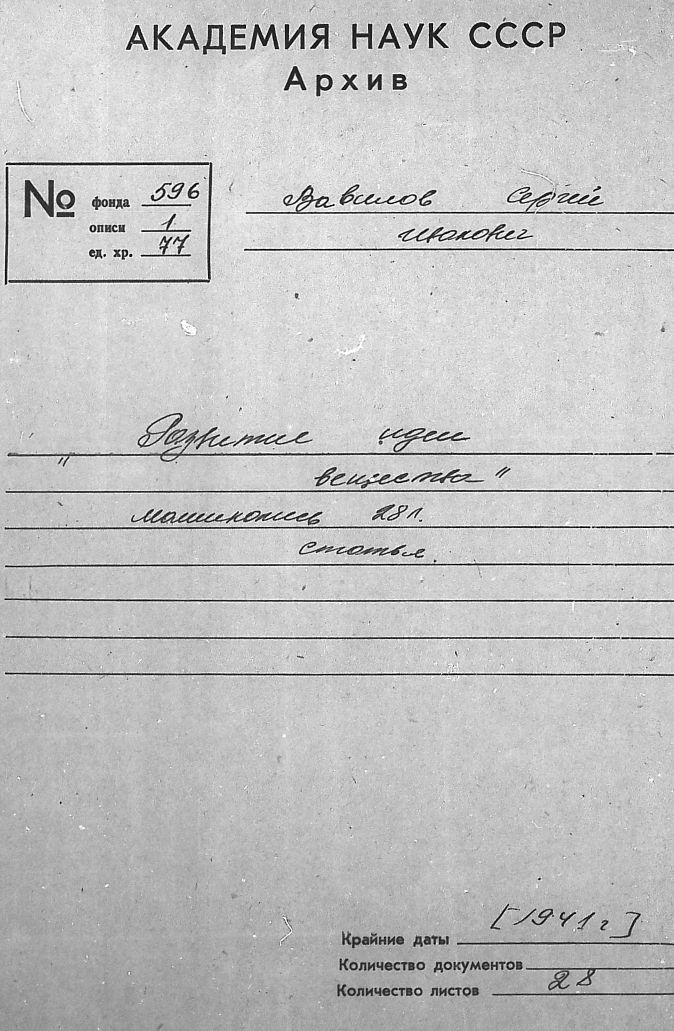 АКАДЕМИЯ НАУК СССР
Архив
№ фонда 596
описи 1
ед. хр. 77
Вавилов Сергей
Иванович
„Развитие идеи
вещества"
машинопись 28 л.
статья.
[1941 г]
Крайние даты
Количество документов
Количество листов 28